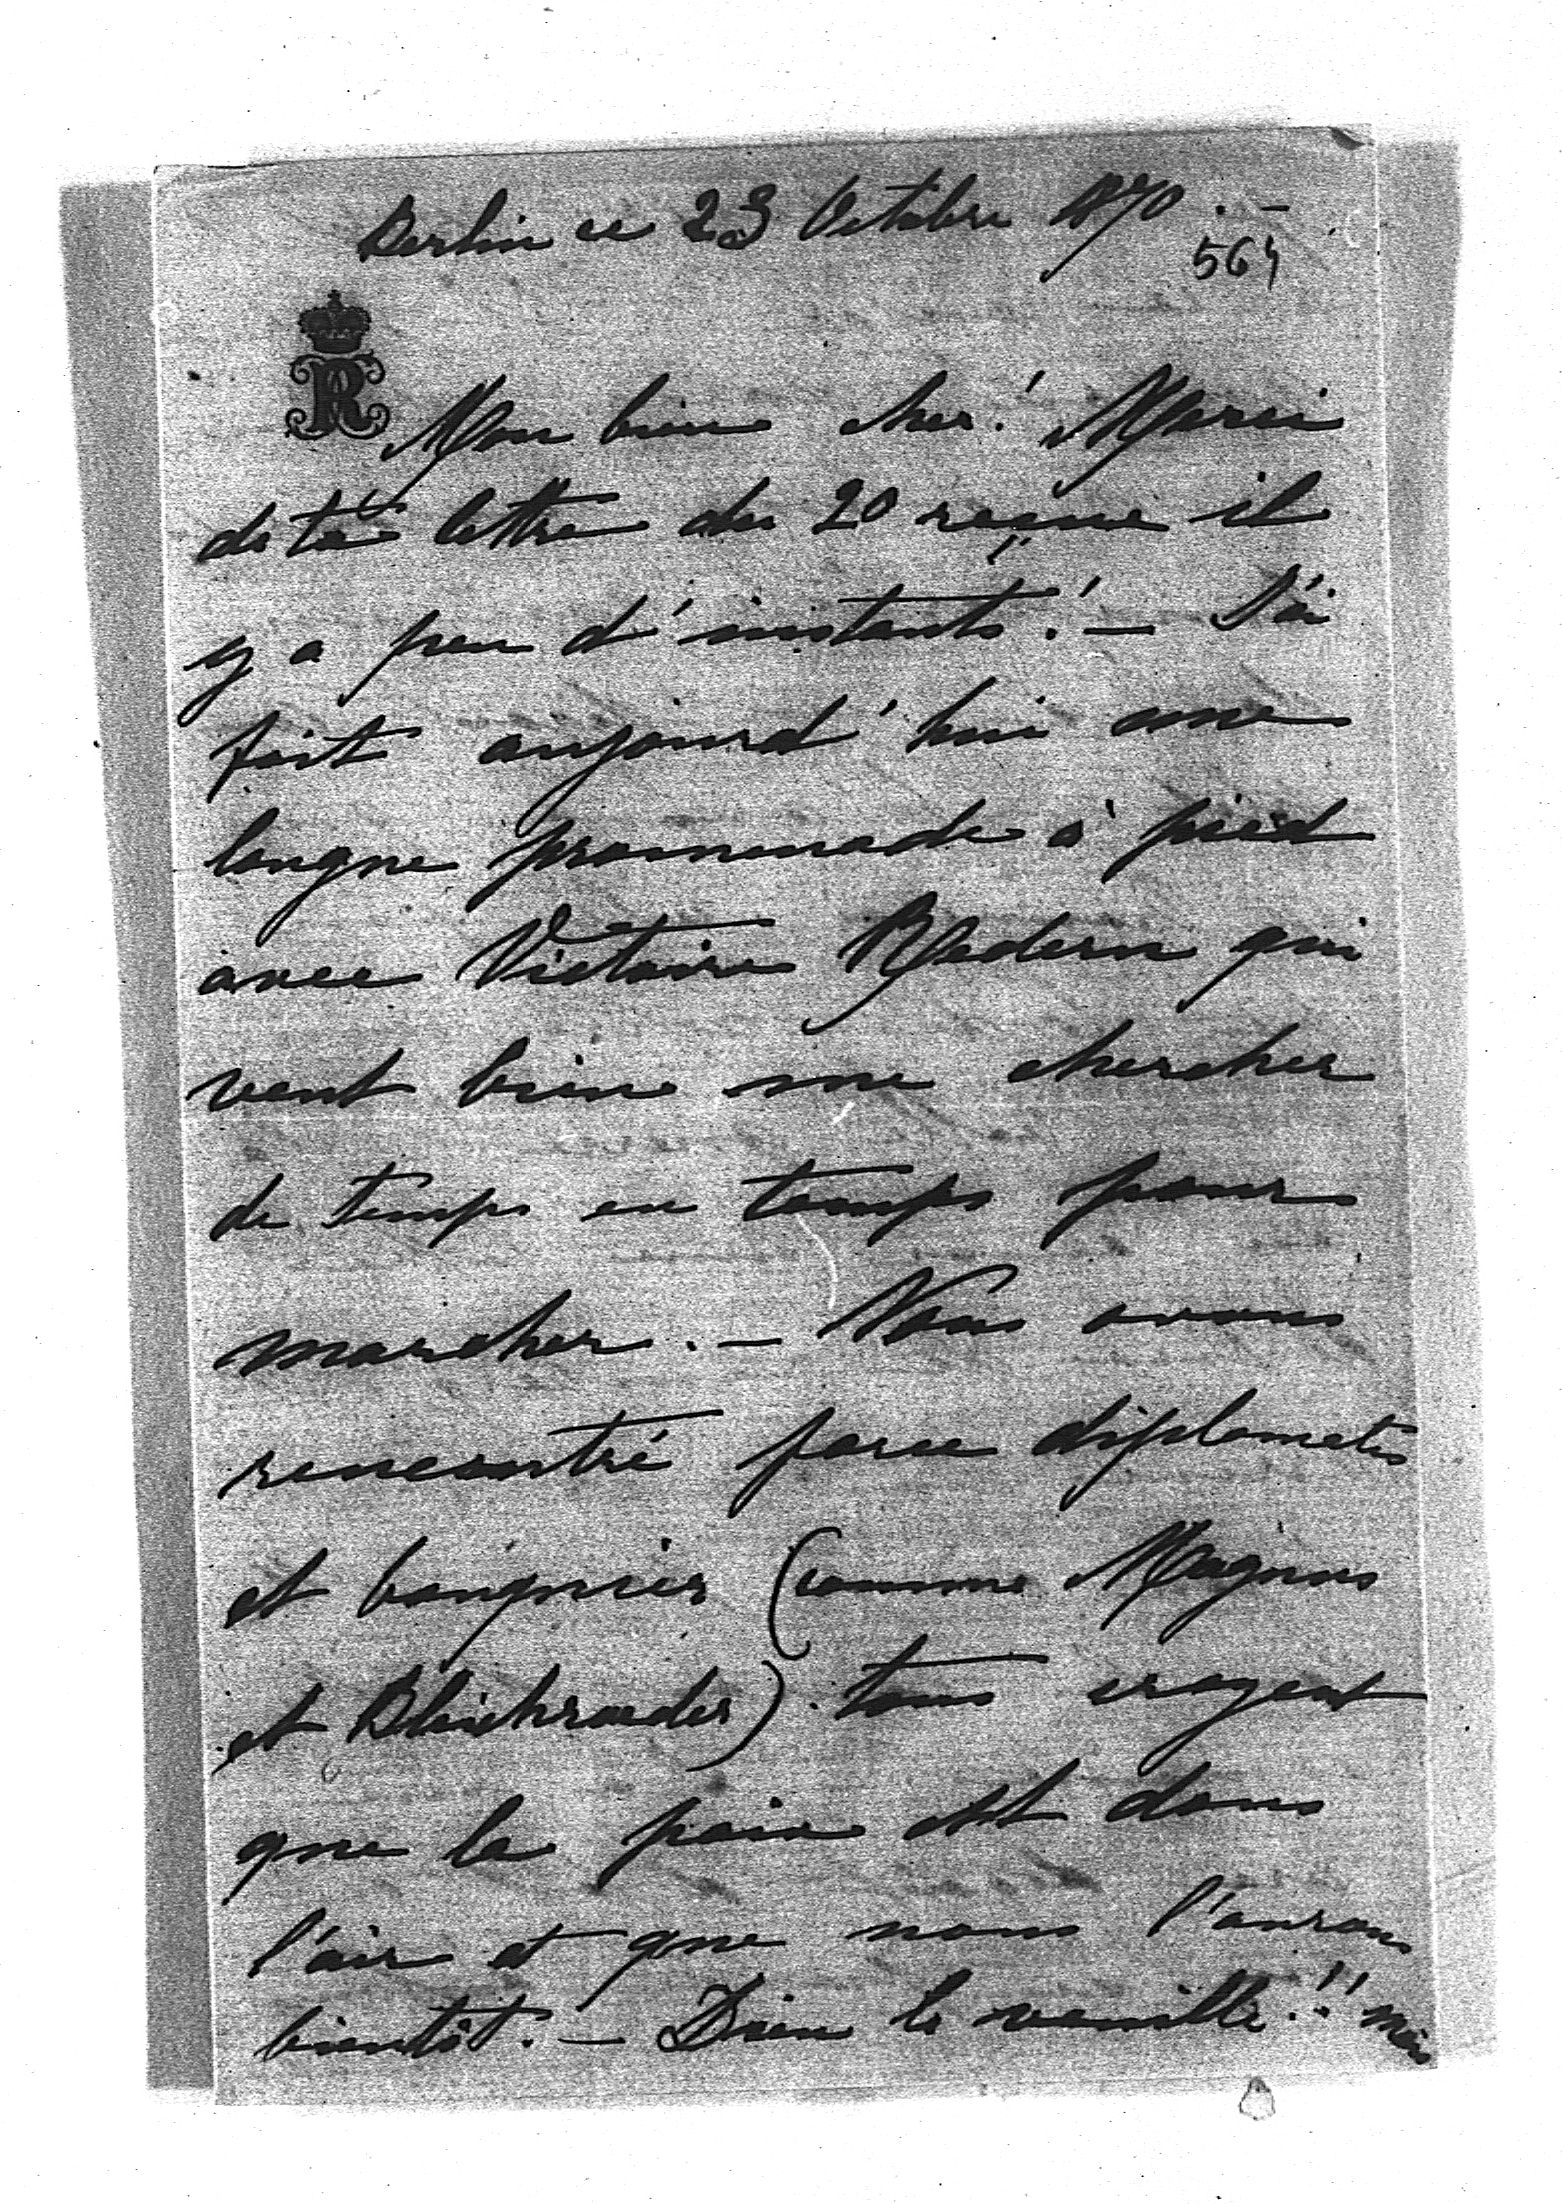 Berlin ce 23 Octobre 1870. –
564
R
Mon bien cher! Merci
de ta lettre du 20 reçue il
y a peu d'instants! – J'ai
fait aujourd'hui une
longue promenade à pied
avec Victoire Redern qui
veut bien me chercher
de temps en temps pour
marcher. – Nous avons
rencontré force diplomates
et banquiers (comme Magnus
et Bleichroeder) tous croyent
que la paix est dans
l'air et que nous l'aurons
bientôt. – Dieu le veuille!! mais